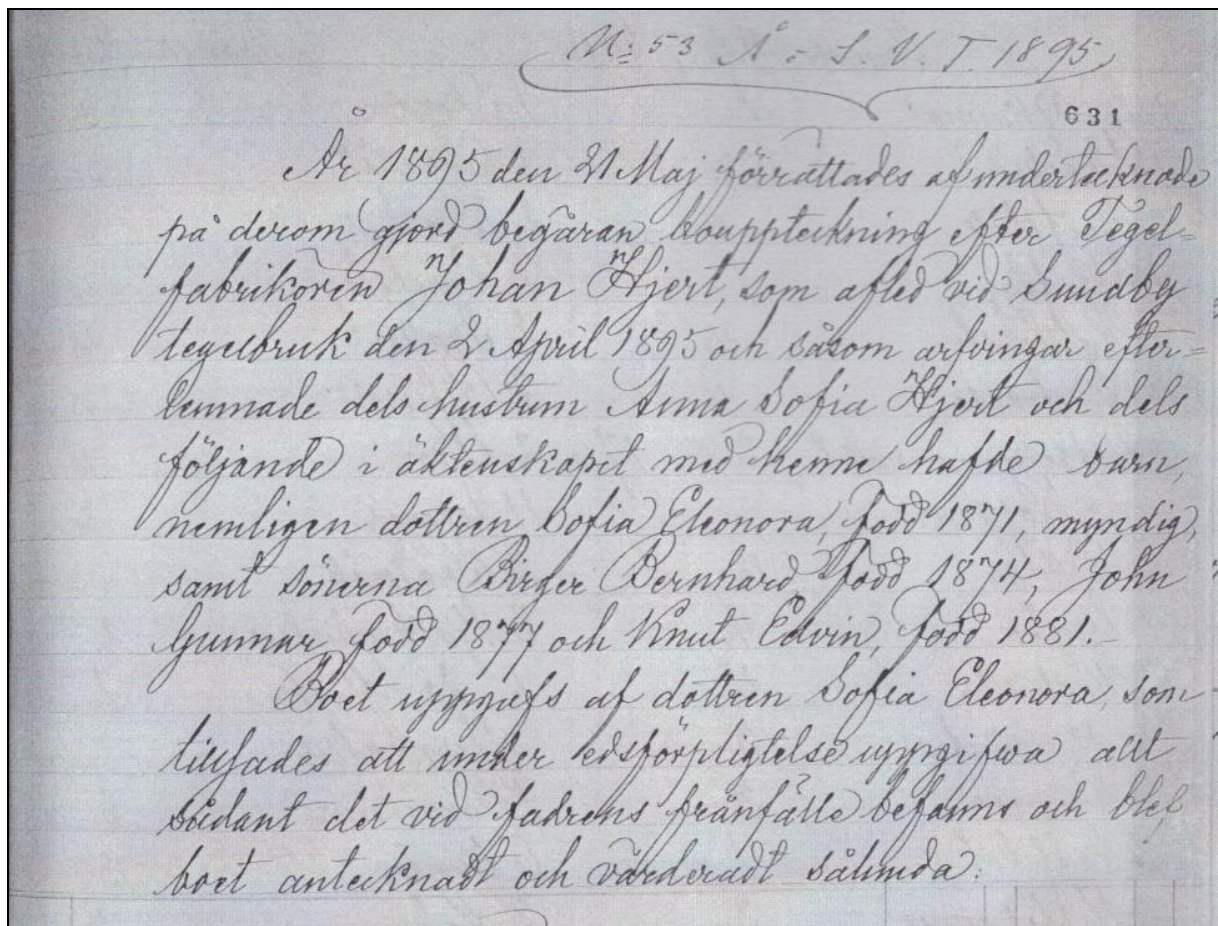 N: 53 Å: S. V. T. 1895
631
År 1895 den 21 Maj förrättades af undertecknade
på derom gjord begäran bouppteckning efter Tegel=
fabrikören Johan Hjert, som afled vid Sundby
tegelbruk den 2 April 1895 och såsom arfvingar efter=
lemnade dels hustrun Anna Sofia Hjert och dels
följande i äktenskapet med henne hafde barn,
nemligen dottren Sofia Eleonora, född 1871, myndig,
samt sönerna Birger Bernhard född 1874, John
Gunnar född 1877 och Knut Edvin, född 1881.
Boet uppgafs af dottren Sofia Eleonora, som
tillsades att under edsförpligtelse uppgifwa allt
sådant det vid fadrens frånfälle befanns och blef
boet antecknadt och värderadt sålunda: